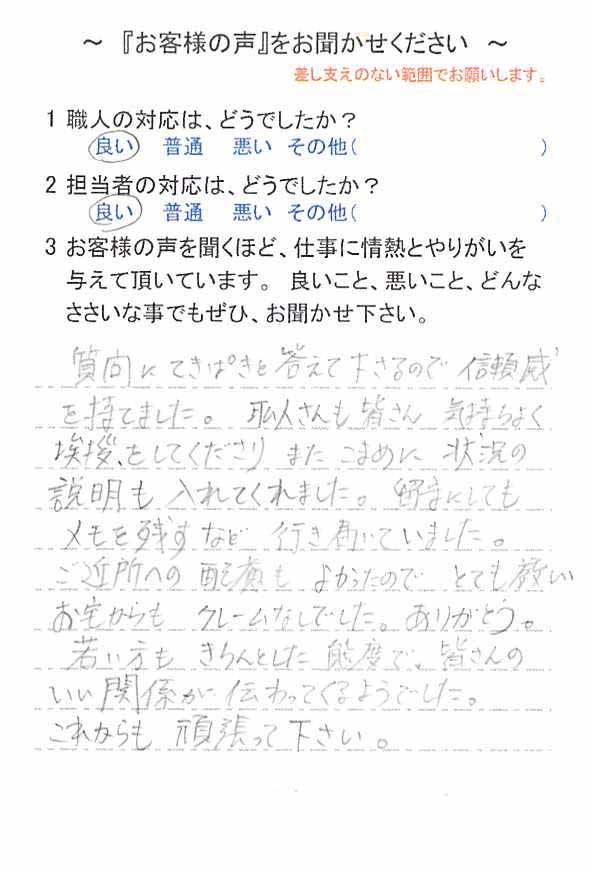 ～ 『お客様の声』をお聞かせください ～
差し支えのない範囲でお願いします。
1 職人の対応は、どうでしたか？
良い 普通 悪い その他( )
2 担当者の対応は、どうでしたか？
良い 普通 悪い その他( )
3 お客様の声を聞くほど、仕事に情熱とやりがいを
与えて頂いています。 良いこと、悪いこと、どんな
ささいな事でもぜひ、お聞かせ下さい。
質問にてきぱきと答えて下さるので 信頼感
を持てました。 職人さんも皆さん 気持ちよく
挨拶、をしてくださり また こまめに 状況の
説明も 入れてくれました。 留守にしても
メモを残すなど 行き届いていました。
ご近所への 配慮も よかったので とても
お宅からも クレームなしでした。ありがとう。
若い方も きちんとした 態度で、皆さんの
いい関係が 伝わってくるようでした。
これからも 頑張って 下さい。